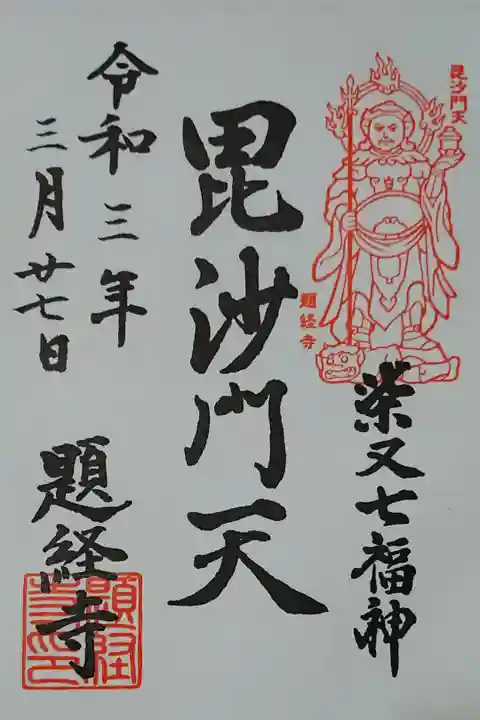 毘沙門天
題経寺
柴又七福神
毘沙門天
令和三年
三月廿七日
題経寺
題経寺